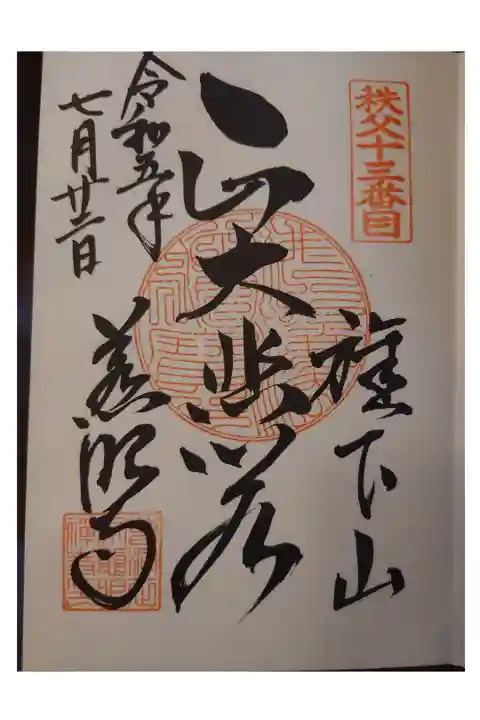 秩父十三番目
旗下山
大悲
慈眼寺
令和五年
七月廿二日